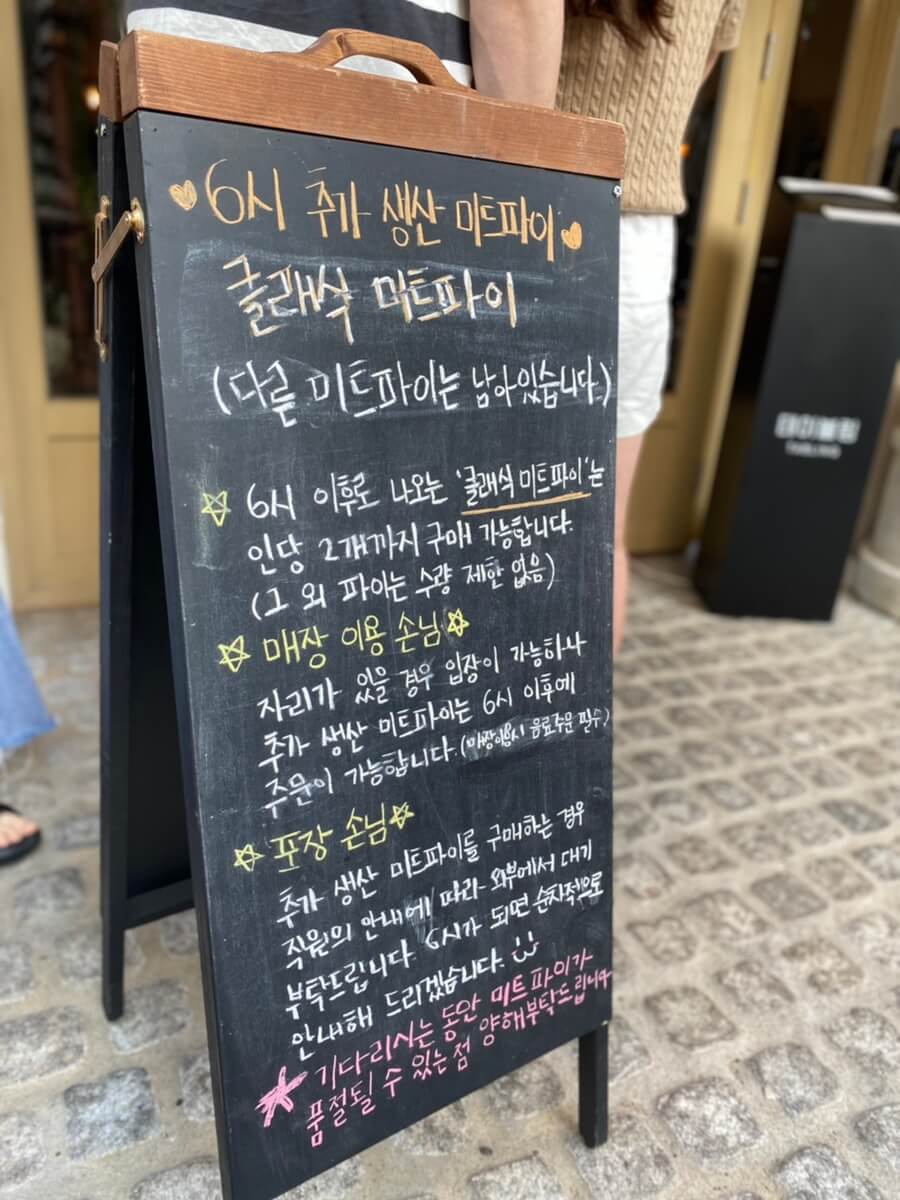 6시 추가 생산 미트파이
클래식 미트파이
(다른 미트파이는 남아있습니다.)
6시 이후로 나오는 '클래식 미트파이'는
인당 2개까지 구매 가능합니다.
(그 외 파이는 수량 제한 없음)
매장 이용 손님
자리가 있을 경우 입장이 가능하나
추가 생산 미트파이는 6시 이후에
주문이 가능합니다. (매장이용시 음료주문 필수)
포장 손님
추가 생산 미트파이를 구매하는 경우
직원의 안내에 따라 외부에서 대기
부탁드립니다. 6시가 되면 순차적으로
안내해 드리겠습니다.
기다리시는 동안 미트파이가
품절될 수 있는점 양해부탁드립니다
테이블링